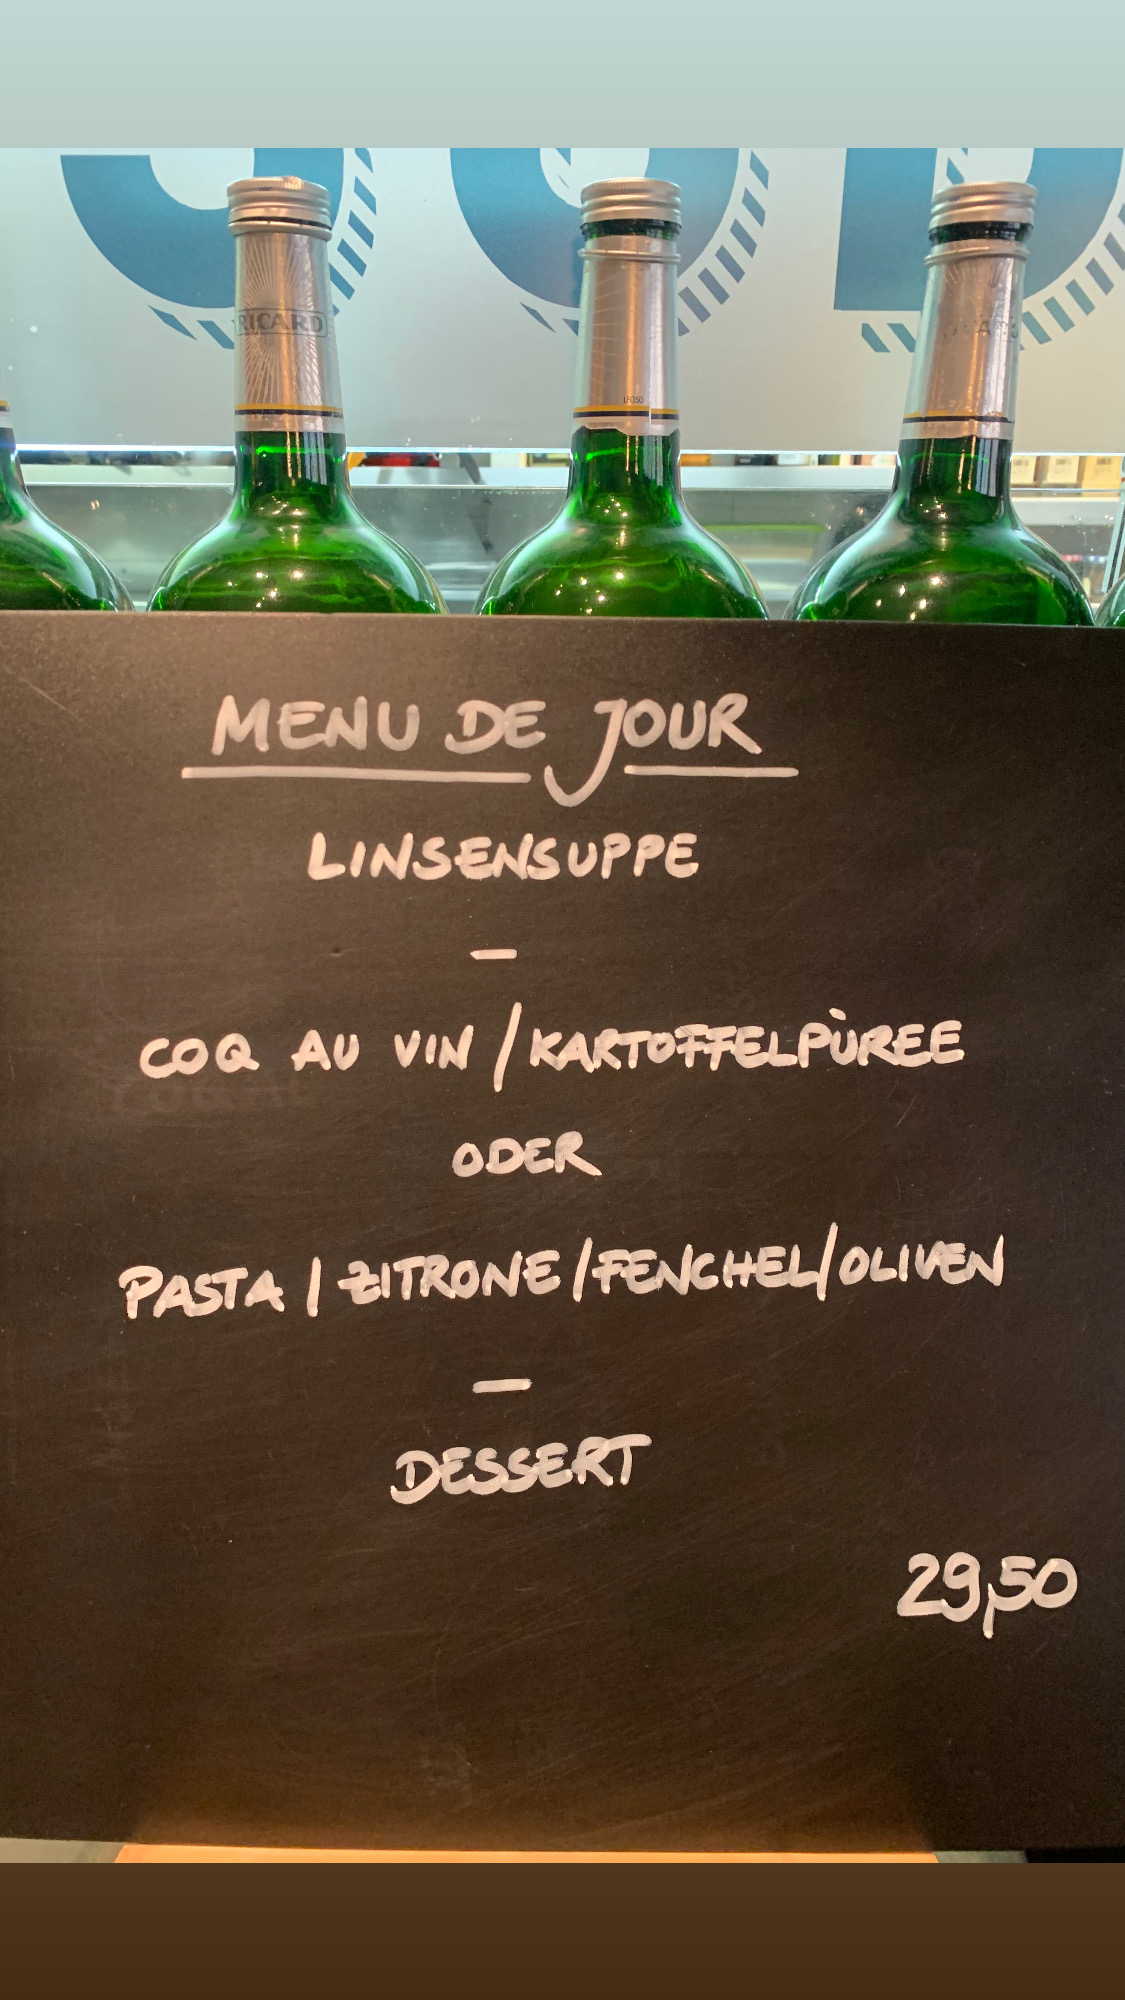 RICARD
LF050
MENU DE JOUR
LINSENSUPPE
–
COQ AU VIN / KARTOFFELPÙREE
ODER
PASTA / ZITRONE / FENCHEL / OLIVEN
–
DESSERT
29,50